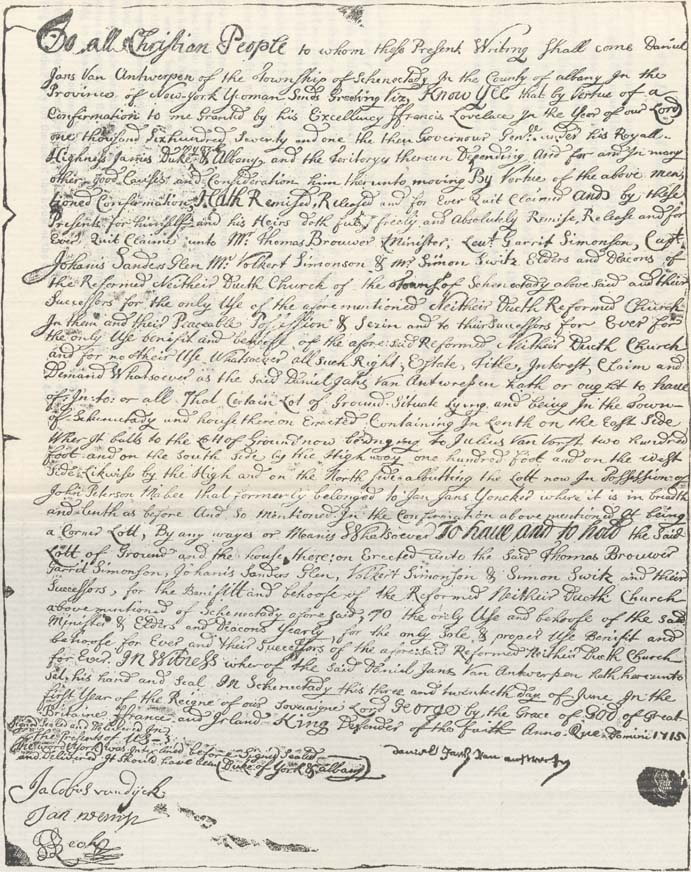 To all Christian People to whom these Present Writing Shall come Daniel
Jans Van Antwerpen of the Township of Schenectady In the County of albany In the
Province of New-York Yeoman Sends Greeting Viz. Know Yee that by Vertue of a
Confirmation to me Granted by his Excellency ffrancis Lovelace In the Year of our Lord
one thousand Sixhundred Seventy and one the then Governour Gen.ll under his Royall
Highness James Duke & Albany and the Teritoryes thereon Depending And for and In many
other good Causes and Consideration him therunto moving By Vertue of the above men,
tioned Confirmation Hath Remised, Released and for Ever Quit Claimed and by these
Presents for himself and his Heirs doth fully, freely and Absolutely Remise, Release and for
Ever Quit Claime unto Mr. Thomas Brouwer Minister, Leut. Garrit Simonson, Capt.
Johanis Sanders Glen Mr. Volkert Simonson & Mr. Simon Switz Elders and Deacons of
the Reformed Neither Duch Church of the Town of Schenectady above Said and their
Successors for the only Use of the afore mentioned Neither Duch Reformed Church
In them and their Peaceable Possession & Sezin and to their Successors for Ever for
the only Use benifit and behoofe of the afore said Reformed Neither Duch Church
and for no other Use Whatsoever all such Right, Estate, Title, Interest, Claim and
Demand Whatsoever as the Said Daniel Jans Van Antwerpen hath or ought to have
of: In: to: or all That Certain Lot of Ground Situate Lying and being In the Town
of Schenectady and house thereon Erected Containing In Lenth on the East Side
Wher It buts to the Lott of Ground now belonging to Julius Van Vorst two hundred
foot and on the South Side by the High way one hundred foot and on the West
Side Likwise by the High and on the North side abutting the Lott now In Possession of
John Peterson Mabee that formerly belonged to Jan Jans Yoncker where it is in breadth
and lenth as before And So mentioned In the Confirmation above mentioned It being
a Corner Lott, By any wayes or Meanes Whatsoever To have and to hold the Said
Lott of Ground and the house there on Erected unto the Said Thomas Brouwer
Garrit Simonson, Johanis Sanders Glen, Volkert Simonson & Simon Switz and their
Successors, for the Benifitt and behoofe of the Reformed Neither Duch Church
above mentioned of Schenectady afore Said, To the only Use and behoofe of the said
Minister & Elders and Deacons Yearly, for the only Sole, & proper Use Benifit and
behoofe for Ever and their Successors of the afore said Reformed Neither Duch Church
for Ever. In Witness wher of the Said Daniel Jans Van Antwerpen hath hereunto
Set his hand and Seal In Schenectady this three and twenteth day of June In the
first Year of the Reigne of our Soveraigne Lord George by the Grace of God of Great
Britaine ffrance and Irland King Defender of the faith Anno. Que Domini 1715
Signd Sealed and Delivered In
the Presents of
the word (York) was Interlined before Signed Sealed
and Delivered It should have been (Duke of York & albany)
daniel Jans Van antwerpen
Jacobus van dyck
Jan wemp